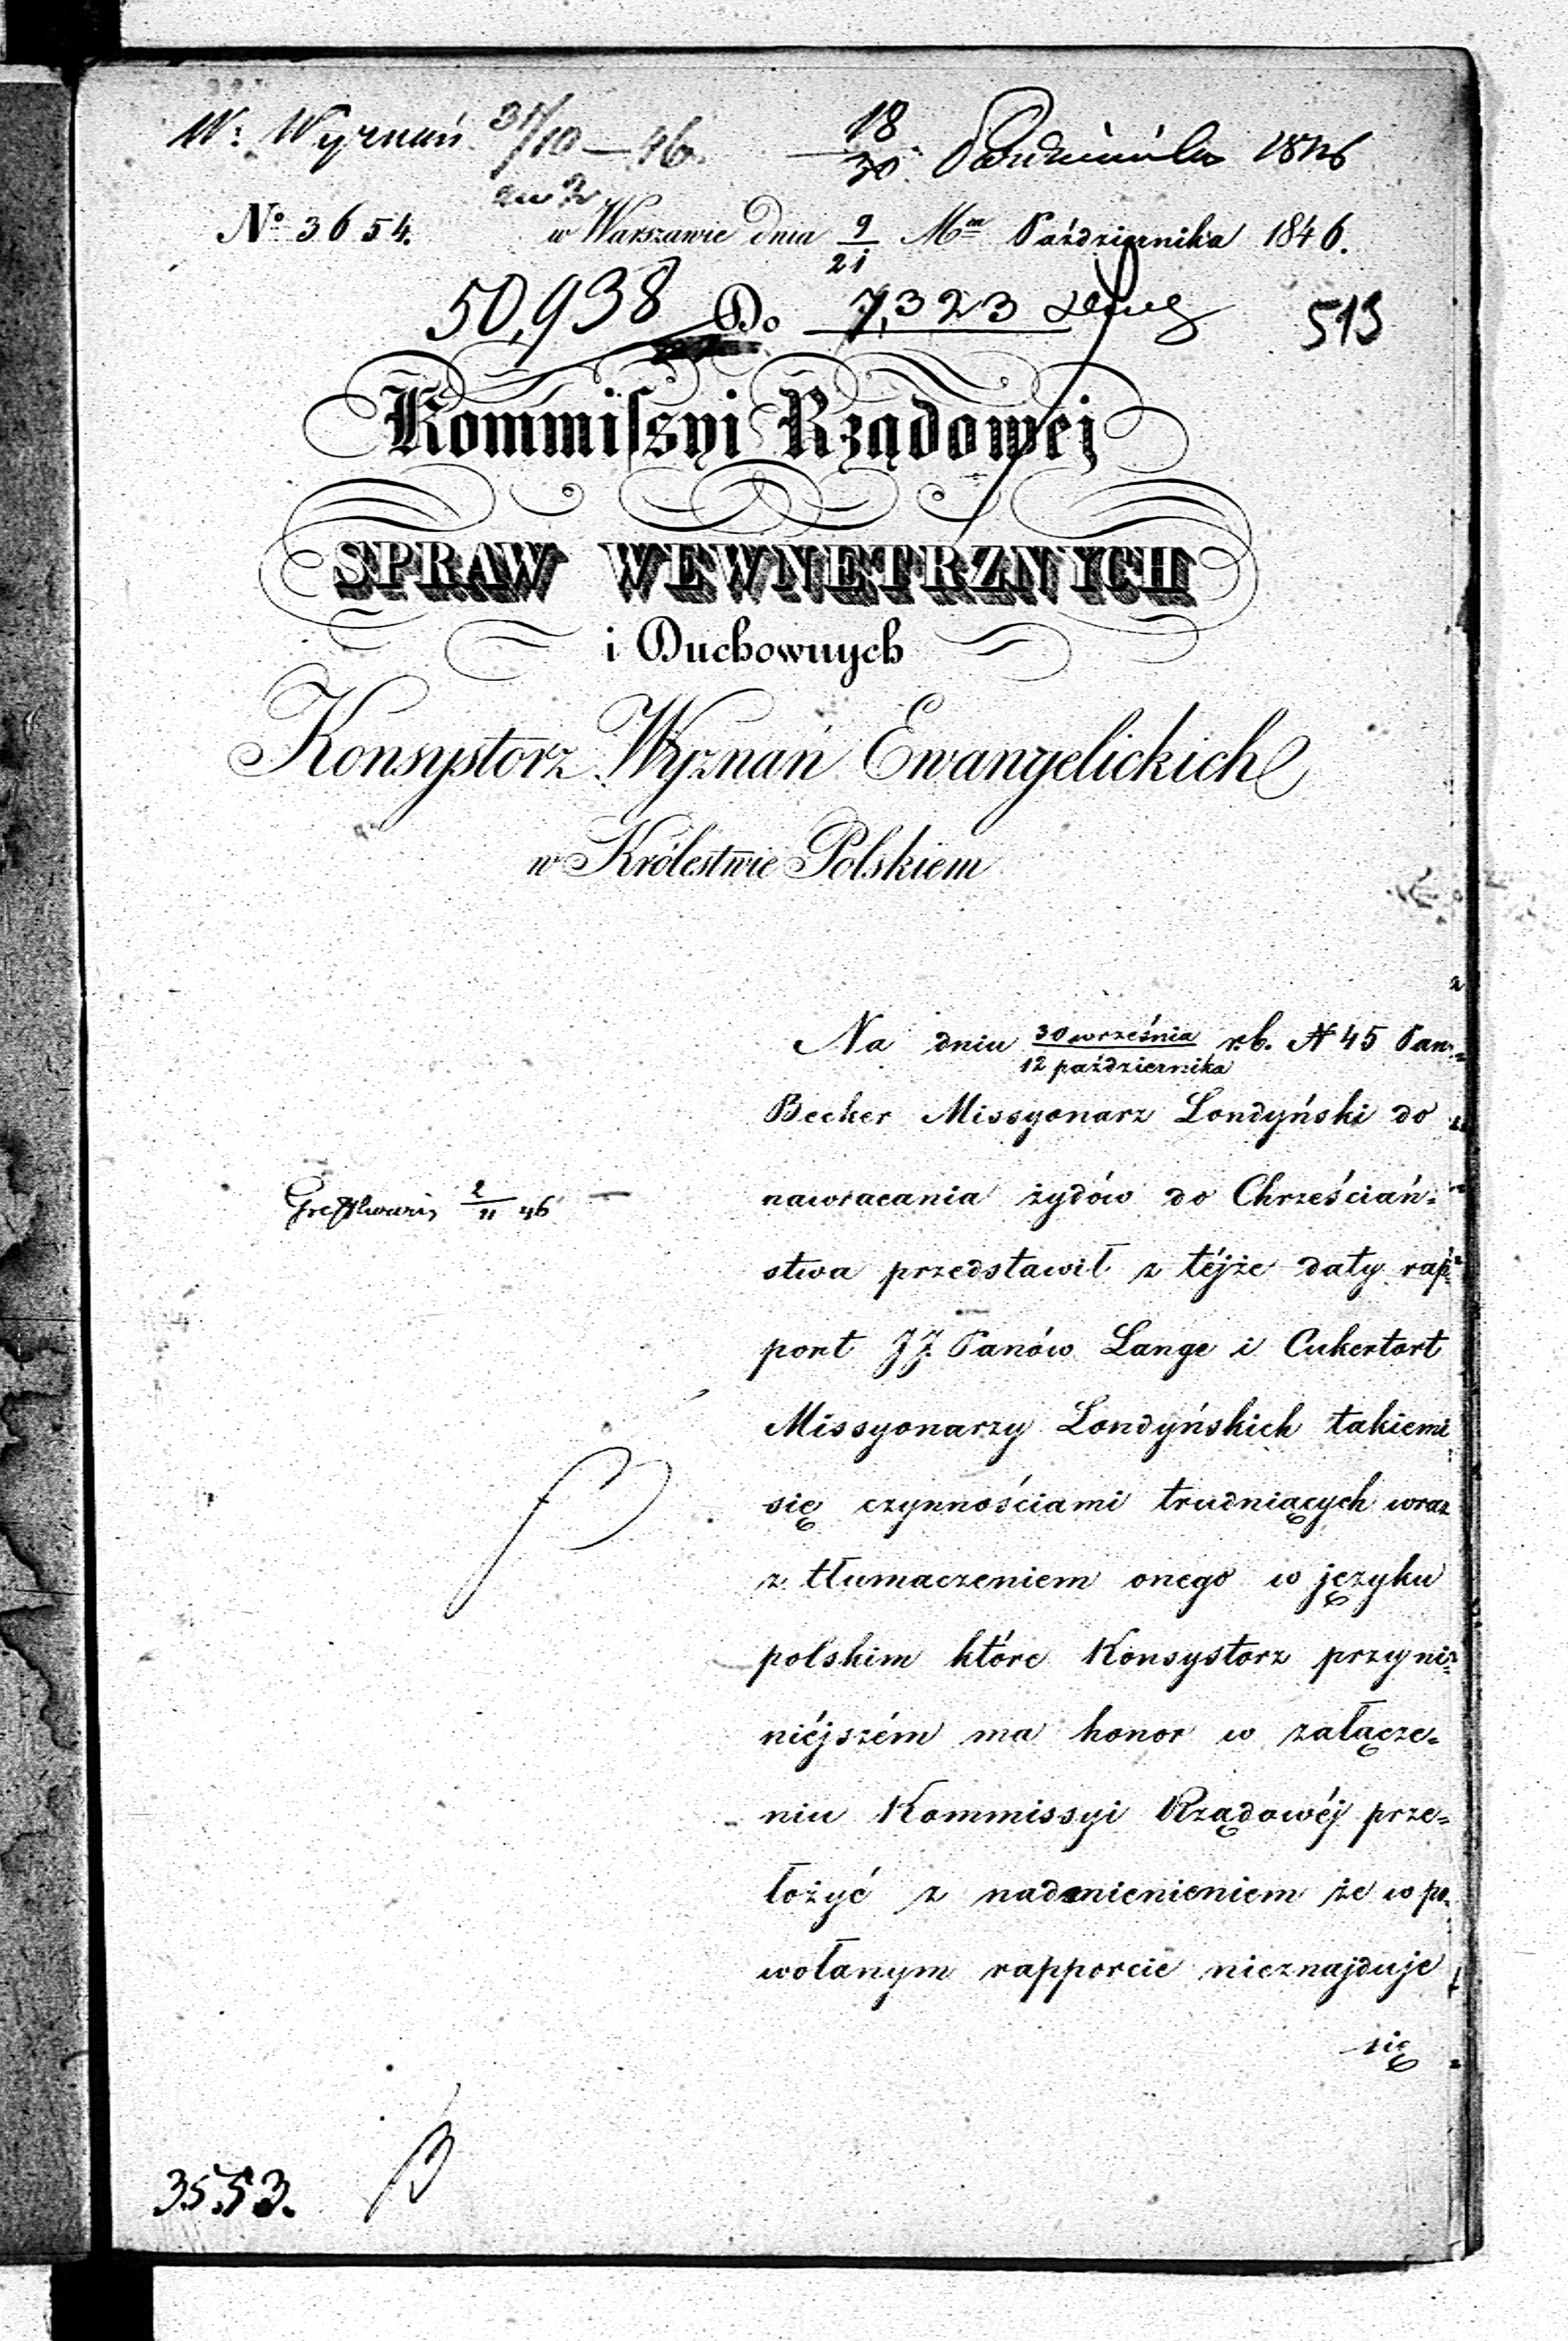 W: Wyznań 31/10 – 46. 18/30 Października 1846
№ 3654. w Warszawie dnia 9/21 Mca Października 1846.
50,938 Do 7,323 513
Kommiſsyi Rządowej
SPRAW WEWNĘTRZNYCH
i Duchownych
Konsystorz Wyznań Ewangelickich
w Królestwie Polskiem
Na dniu 30 września / 12 października r.b. N 45 Pan
Becker Missyonarz Londyński do
nawracania żydów do Chrześciań=
stwa przedstawił z téjże daty rap=
port JJ. Panów Lange i Cukertort
Missyonarzy Londyńskich takiemi
się czynnościami trudniących wraz
z tłumaczeniem onego w języku
polskim które Konsystorz przy ni=
niéjszém ma honor w załącze=
niu Kommissyi Rządowéj prze=
łożyć z nadmienieniem że w po=
wołanym rapporcie nieznajduje
się
2/11 46
3553.